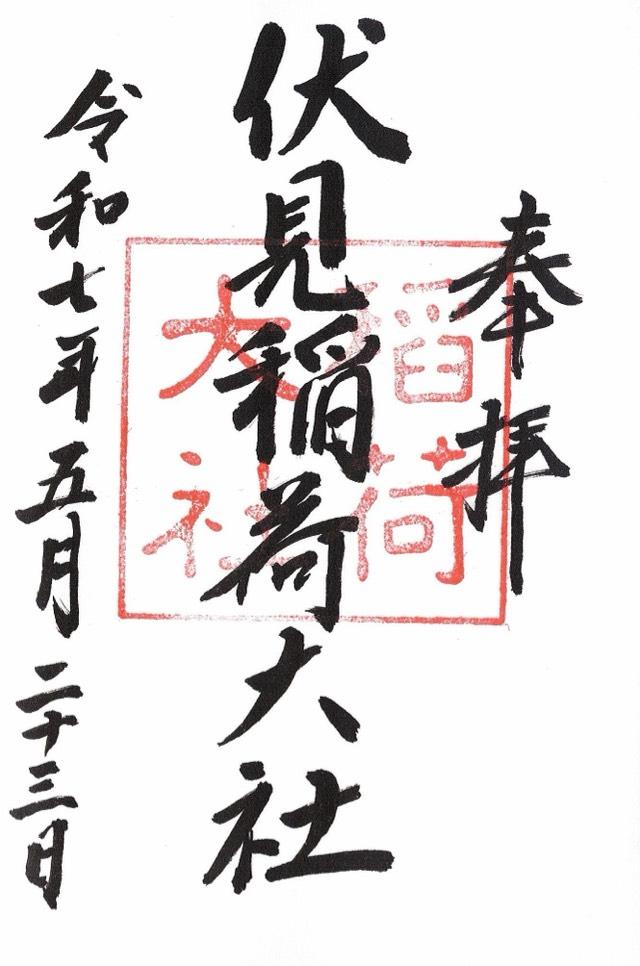 奉拝
伏見稲荷大社
稲荷
大社
令和七年五月二十三日